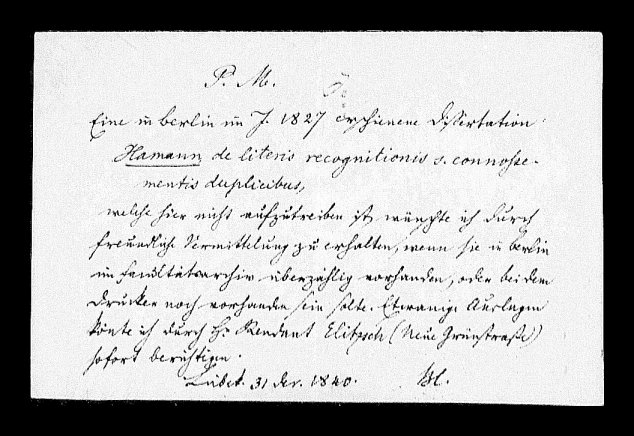 P. M.
Eine in Berlin im J. 1827 erschienene Dissertation
Hamann de literis recognitionis s. connosse-
mentis duplicibus,
welche hier nicht aufzutreiben ist, wünschte ich durch
freundliche Vermittelung zu erhalten, wenn sie in Berlin
im Facultätsarchiv überzählig vorhanden, oder bei dem
Drucker noch vorhanden sein sollte. Etwanige Auslagen
könte ich durch H. Rendant Elitzsch (Neue Grünstraße)
sofort berichtigen.
Lübek. 31 Dec. 1840.